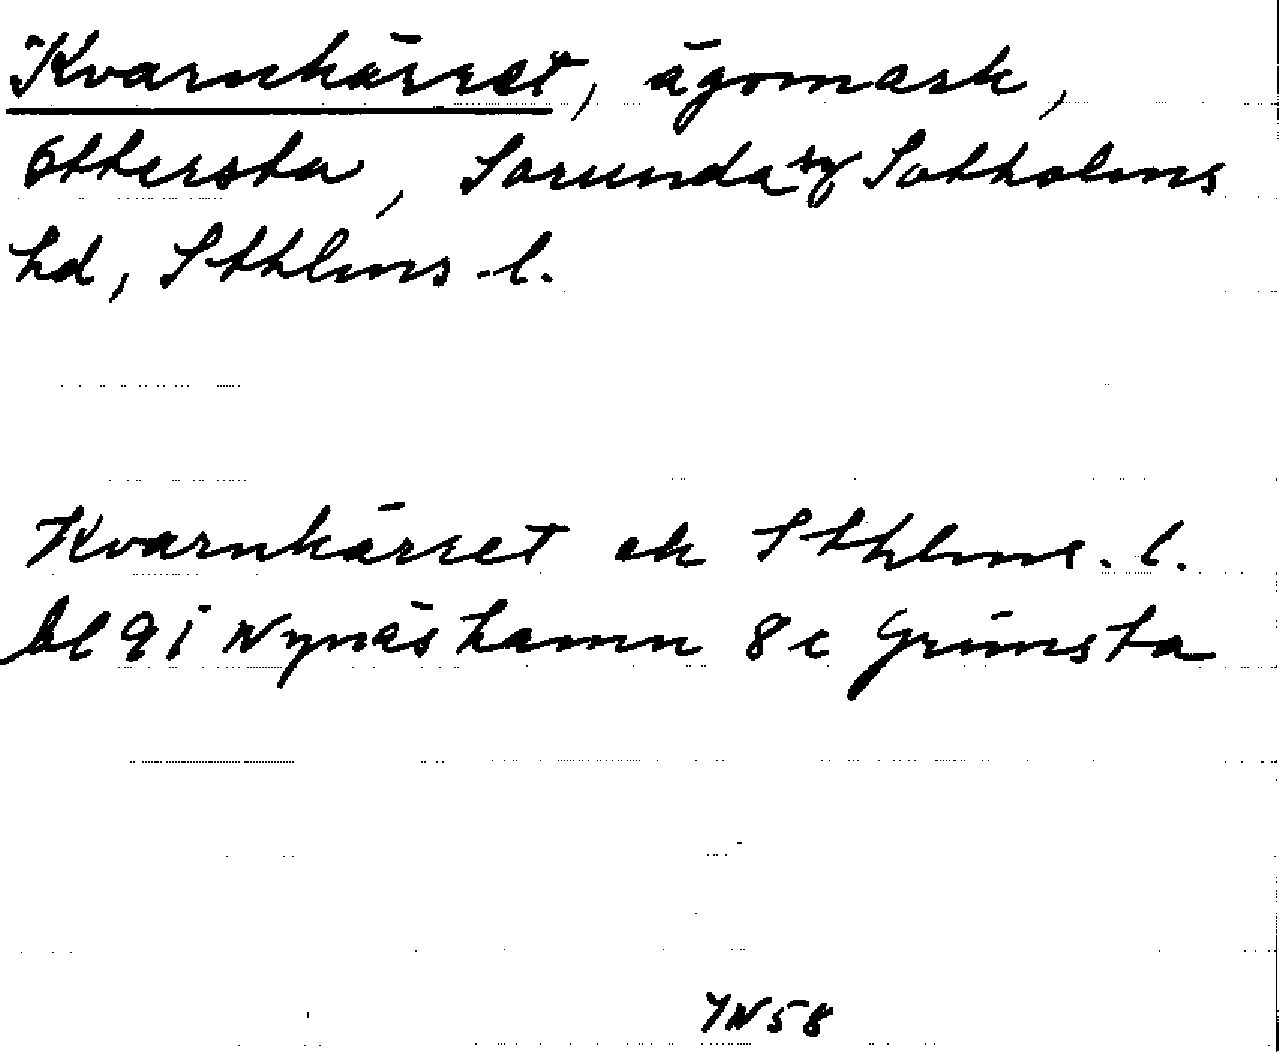 Kvarnkärret, ägomark,
Ottersta, Sorunda sn Sotholms
hd, Sthlms l.
Kvarnkärret ek Sthlms. l.
bl 9 i Nynäshamn 8 c Grimsta
YN58